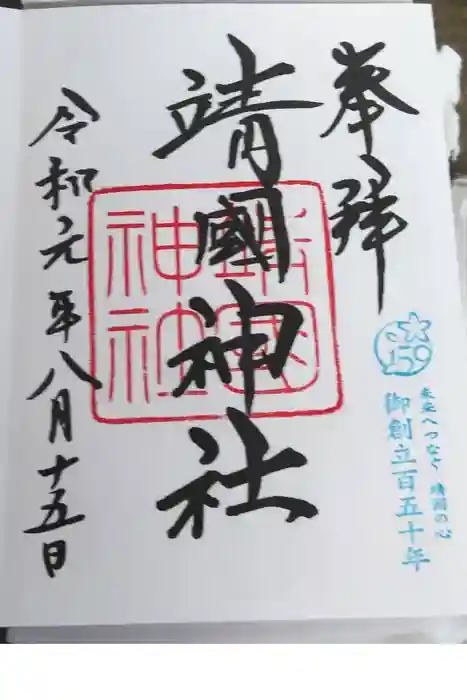 奉拝
靖國神社
靖國神社
令和元年八月十五日
150
未来へつなぐ 靖国の心
御創立百五十年